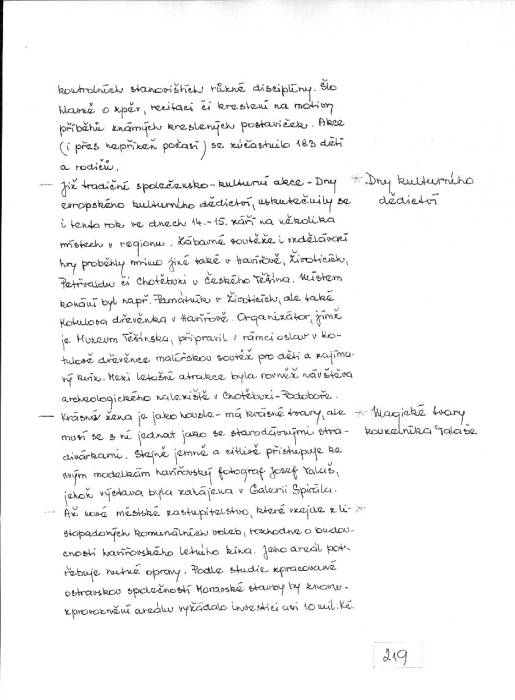 kontrolních stanovištích různé disciplíny. Šlo
hlavně o zpěv, recitaci či kreslení na motivy
příběhů známých kreslených postaviček. Akce
(i přes nepřízeň počasí) se zúčastnilo 183 dětí
a rodičů.
— Již tradiční společensko-kulturní akce - Dny
evropského kulturního dědictví, uskutečnily se
i tento rok ve dnech 14.-15. září na několika
místech v regionu. Zábavné soutěže i vzdělávací
hry proběhly mimo jiné také v Havířově, Životicích,
Petřvaldu či Chotěbuzi u Českého Těšína. Místem
konání byl např. Památník v Životicích, ale také
Kotulova dřevěnka v Havířově. Organizátor, jímž
je Muzeum Těšínska, připravil v rámci oslav v Ko-
tulově dřevěnce malířskou soutěž pro děti a zajíma-
vý kvíz. Mezi letošní atrakce byla rovněž návštěva
archeologického naleziště v Chotěbuzi-Podoboře.
— Krásná žena je jako housle - má krásné tvary, ale
musí se s ní jednat jako se starodávnými stra-
divárkami. Stejně jemně a citlivě přistupuje ke
svým modelkám havířovský fotograf Josef Talaš,
jehož výstava byla zahájena v Galerii Spirála.
— Až nové městské zastupitelstvo, které vzejde z li-
stopadových komunálních voleb, rozhodne o budou-
cnosti havířovského letního kina. Jeho areál pot-
řebuje nutné opravy. Podle studie zpracované
ostravskou společností Moravské stavby by znovu-
zprovoznění areálu vyžádalo investici asi 10 mil. Kč.
* Dny kulturního
dědictví
* Magické tvary
kouzelníka Talaše
*
219